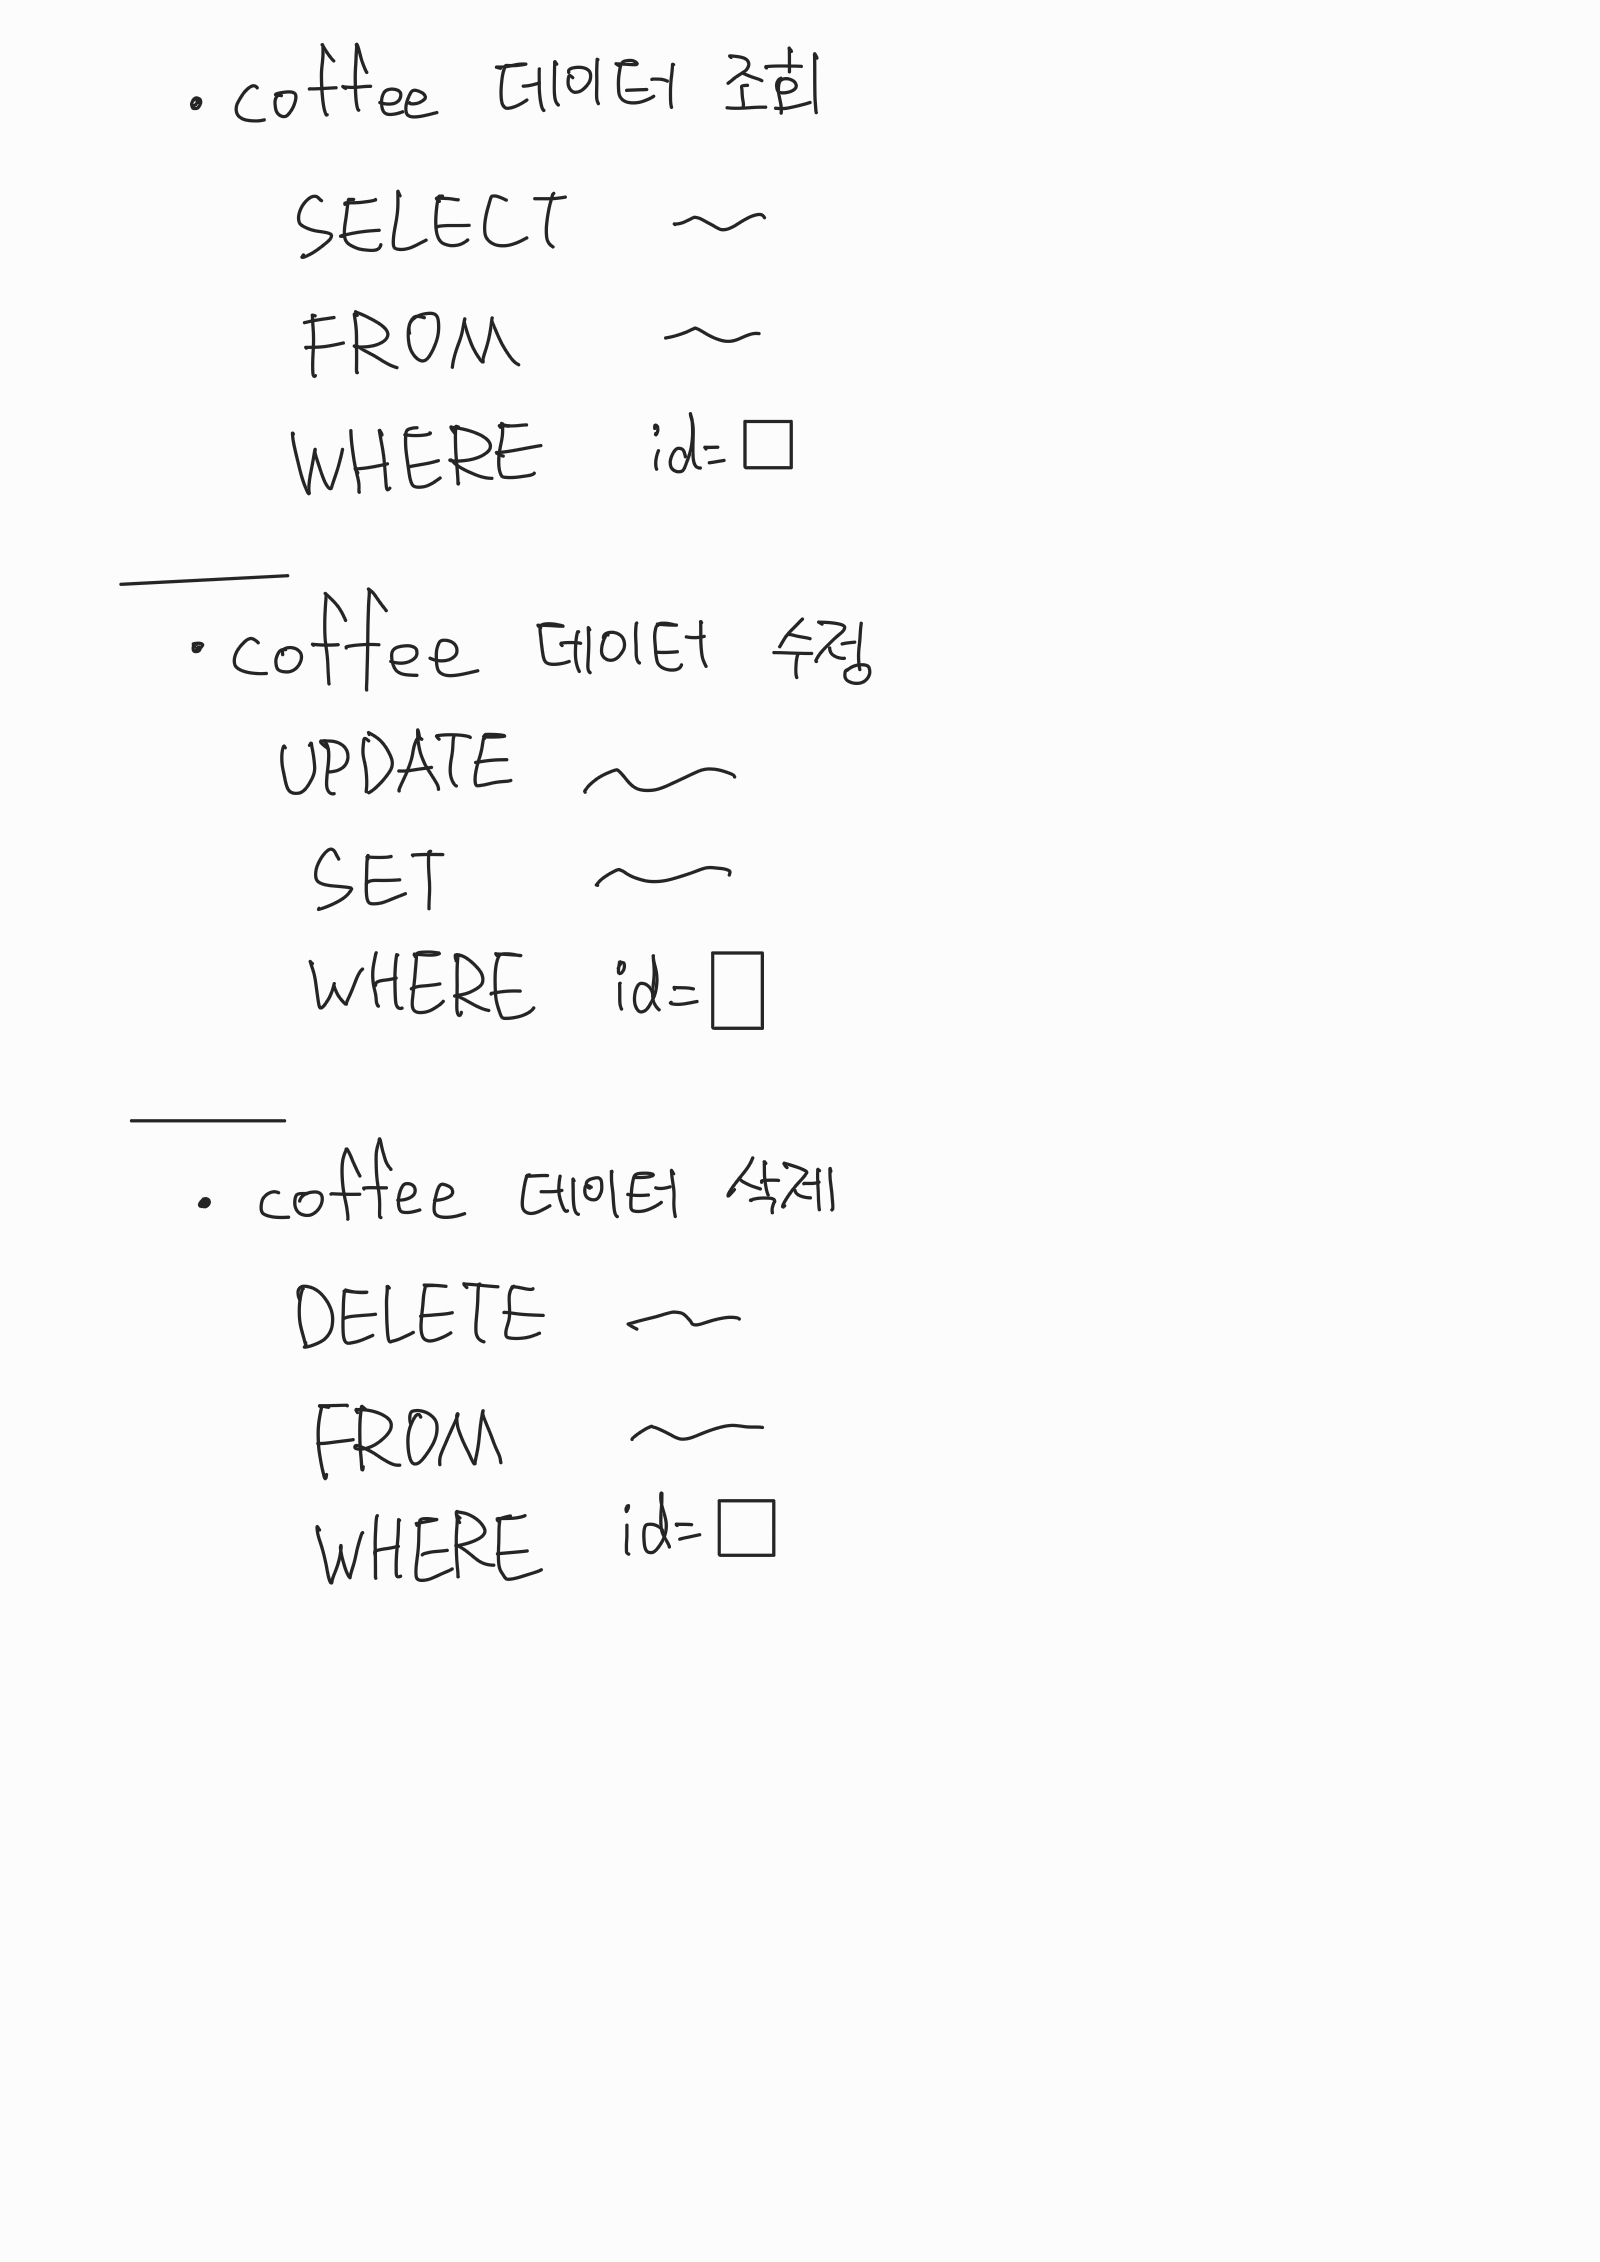 • coffee 데이터 조회
SELECT ~
FROM ~
WHERE id=□
• coffee 데이터 수정
UPDATE ~
SET ~
WHERE id=□
• coffee 데이터 삭제
DELETE ~
FROM ~
WHERE id=□